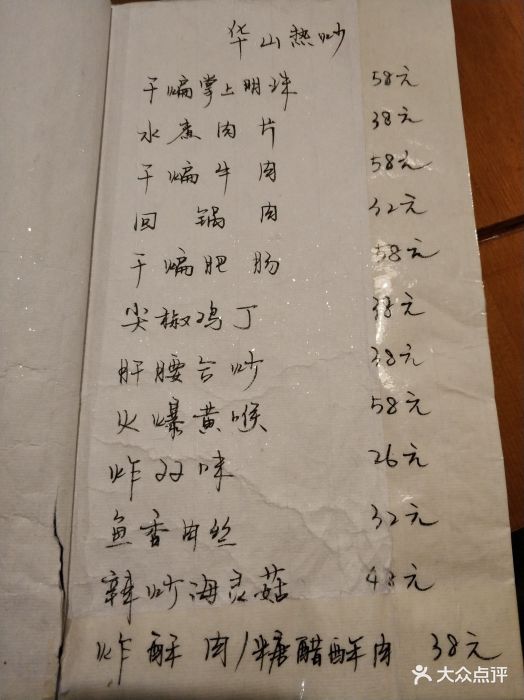 华山热炒
干煸掌上明珠 58元
水煮肉片 38元
干煸牛肉 58元
回锅肉 32元
干煸肥肠 58元
尖椒鸡丁 38元
肝腰合炒 38元
火爆黄喉 58元
炸双味 26元
鱼香肉丝 32元
辣炒海灵菇 48元
炸酥肉/糖醋酥肉 38元
大众点评